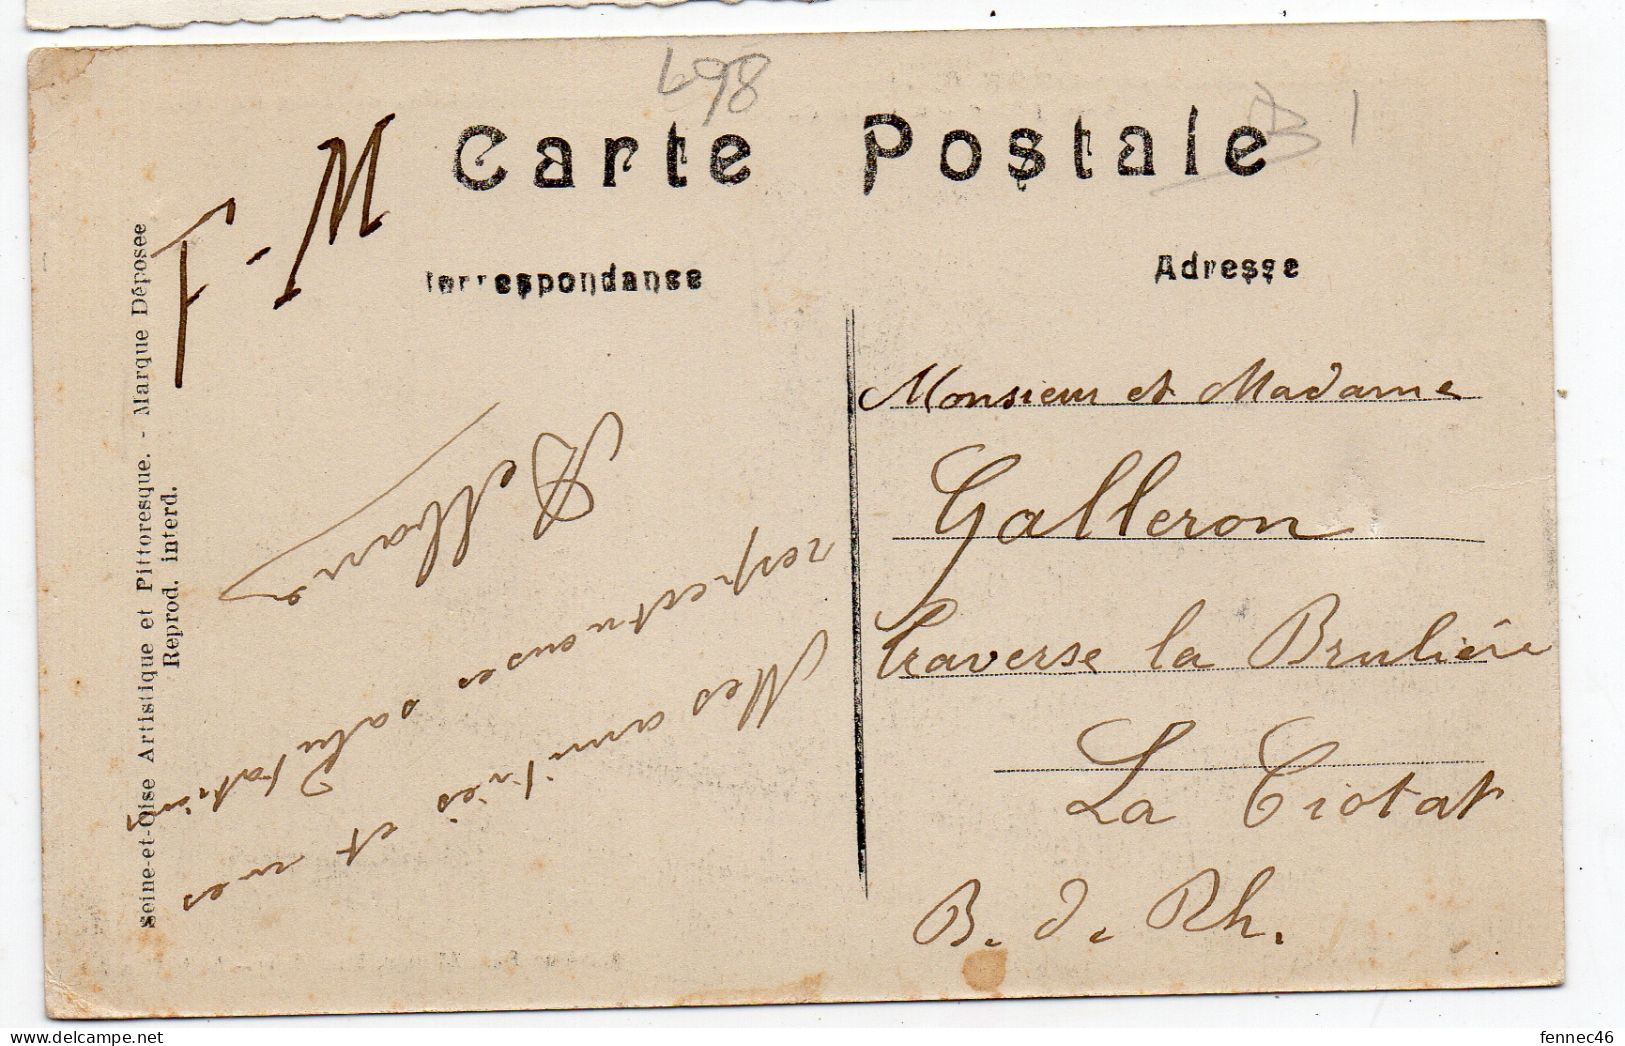 698
B 1
Carte Postale
F-M
Correspondanse
Adresse
Seine-et-Oise Artistique et Pittoresque. - Marque Déposée
Reprod. interd.
Mes amitiés et mes
respectueuses salutations
Monsieur et Madame
Galleron
Traverse la Brulière
La Ciotat
B. d. Rh.
fennec46